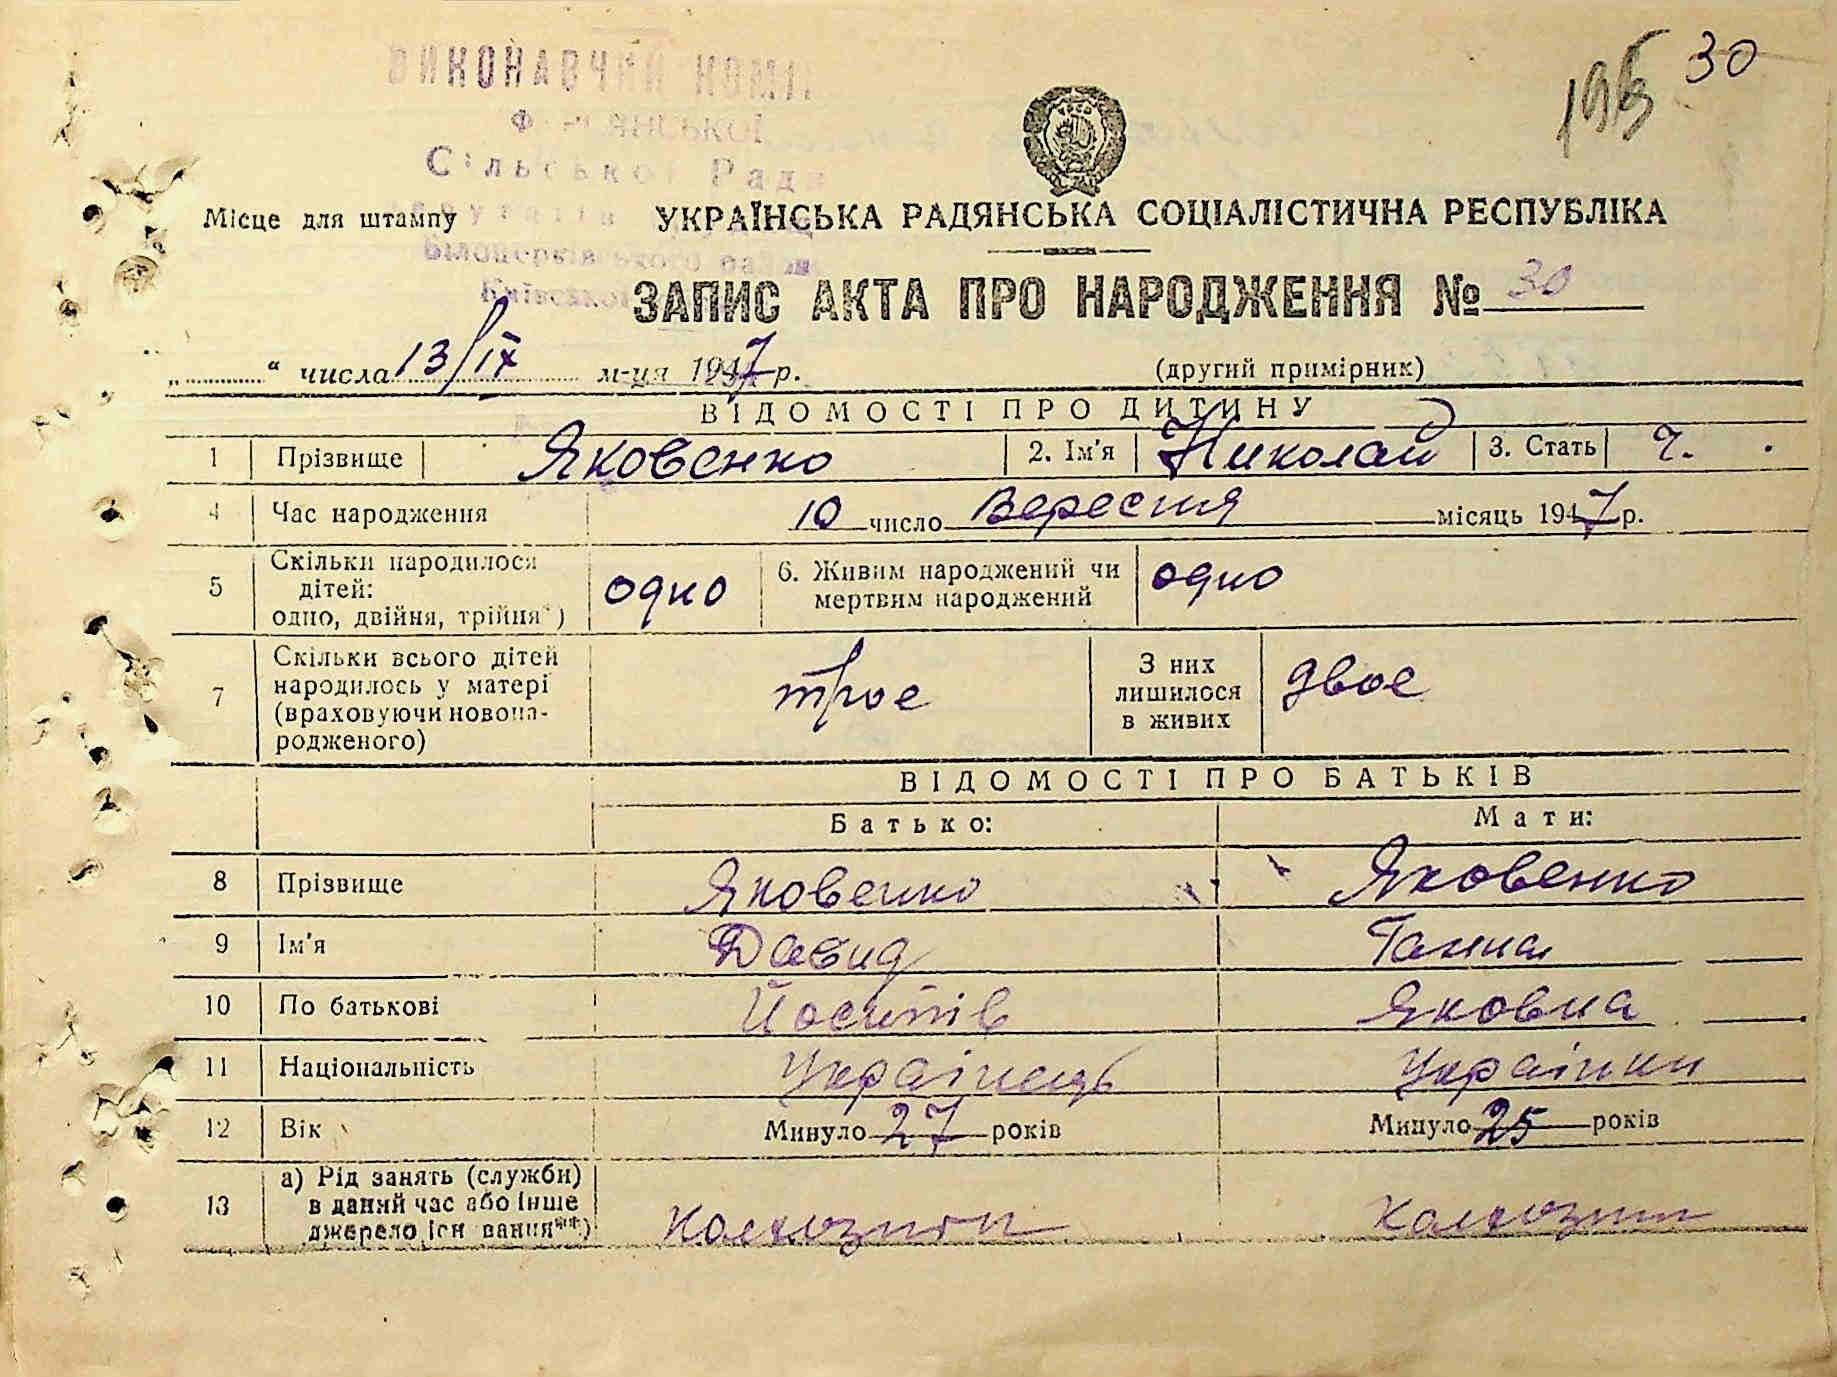 30
ВИКОНАВЧИЙ КОМІ
Сільської Ради
Білоцерківського
Київської
Місце для штампу
УКРАЇНСЬКА РАДЯНСЬКА СОЦІАЛІСТИЧНА РЕСПУБЛІКА
ЗАПИС АКТА ПРО НАРОДЖЕННЯ № 30
„ “ числа 13/IX м-ця 1947 р. (другий примірник)
ВІДОМОСТІ ПРО ДИТИНУ
1 Прізвище Яковенко 2. Ім'я Николай 3. Стать ч.
4 Час народження 10 число Вересня місяць 1947 р.
5 Скільки народилося дітей: одно, двійня, трійня*) одно 6. Живим народжений чи мертвим народжений одно
7 Скільки всього дітей народилось у матері (враховуючи новонародженого) трое З них лишилося в живих двое
ВІДОМОСТІ ПРО БАТЬКІВ
Батько: Мати:
8 Прізвище Яковенко Яковенко
9 Ім'я Давид Ганна
10 По батькові Йосипів Яковна
11 Національність Українець Українки
12 Вік Минуло 27 років Минуло 25 років
13 а) Рід занять (служби) в даний час або інше джерело існування**)